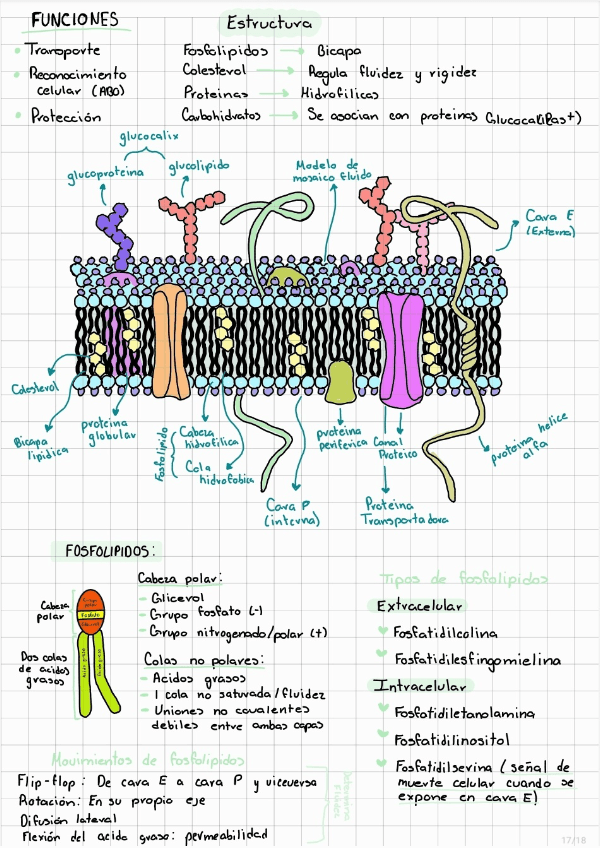 FUNCIONES
Transporte
Reconocimiento
celular (ABO)
Protección
Estructura
Fosfolipidos → Bicapa
Colesterol → Regula fluidez y rigidez
Proteinas → Hidrofilicas
Carbohidratos → Se asocian con proteinas
glucocalix
glucoproteina
glucolipido
Modelo de
mosaico fluido
Cara E
(Externa)
Colesterol
Bicapa
lipidica
proteina
globular
Fosfolipido
Cabeza
hidrofilica
Cola
hidrofobica
Cara P
(interna)
proteina
periferica
Canal
Proteico
Proteina
Transportadora
proteina helice
alfa
FOSFOLIPIDOS:
Cabeza
polar
Fosfato
Dos colas
de acidos
grasos
Cabeza polar:
Glicerol
Grupo fosfato (-)
Grupo nitrogenado/polar (+)
Colas no polares:
Acidos grasos
1 cola no saturada/fluidez
Uniones no covalentes
debiles entre ambas capas
Tipos de fosfolipidos
Extracelular
Fosfatidilcolina
Fosfatidilesfingomielina
Intracelular
Fosfatidiletanolamina
Fosfatidilinositol
Fosfatidilserina (señal de
muerte celular cuando se
expone en cara E)
Movimientos de fosfolipidos
Flip-flop: De cara E a cara P y viceversa
Rotación: En su propio eje
Difusión lateral
Flexión del acido graso: permeabilidad
17/18